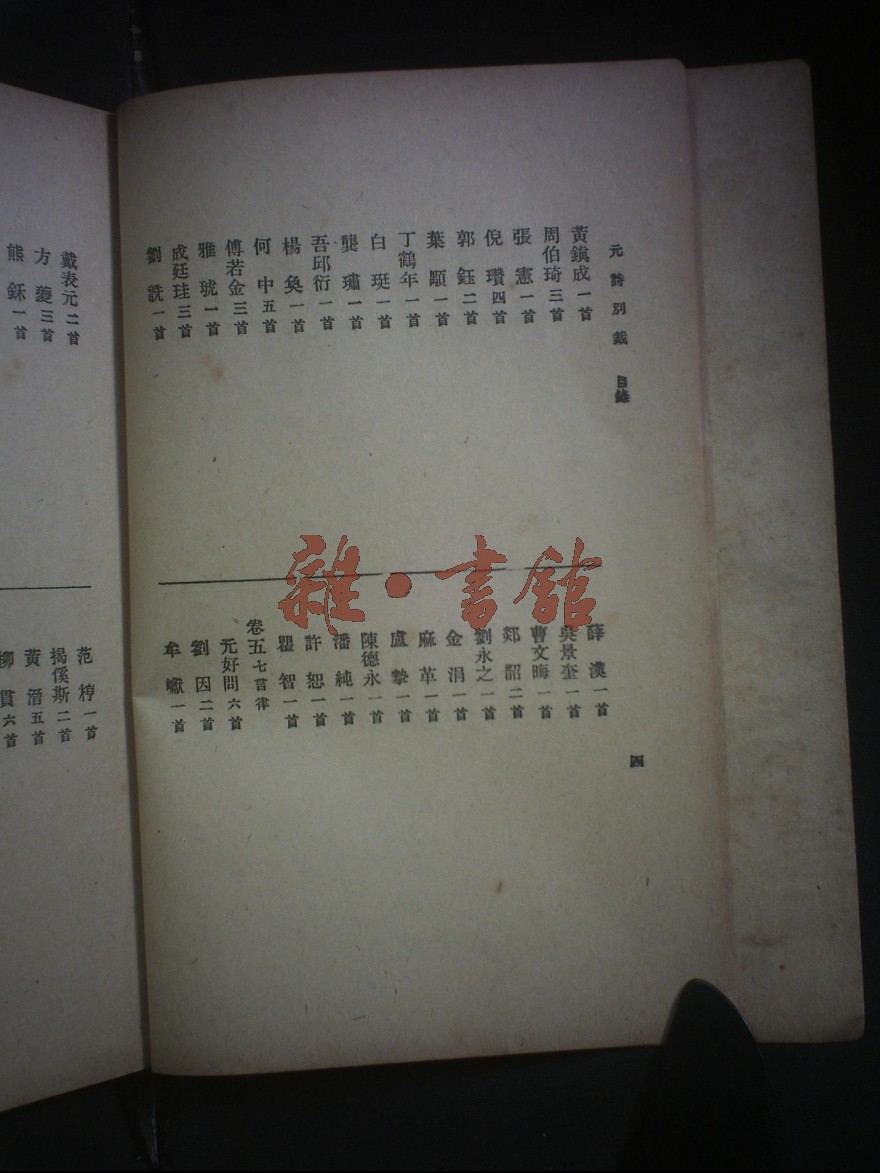 元詩別裁 目錄
黃鎮成一首
周伯琦三首
張憲一首
倪瓚四首
郭鈺二首
葉顒一首
丁鶴年一首
白珽一首
龔璛一首
吾邱衍一首
楊奐一首
何中五首
傅若金三首
雅琥一首
成廷珪三首
劉詵一首
薛漢一首
吳景奎一首
曹文晦一首
郯韶二首
劉永之一首
金涓一首
麻革一首
盧摯一首
陳德永一首
潘純一首
許恕一首
瞿智一首
卷五七言律
元好問六首
劉因二首
牟巘一首
四
戴表元二首
方夔三首
熊鉌一首
范梈一首
揭傒斯二首
黃溍五首
柳貫六首
雜·書館